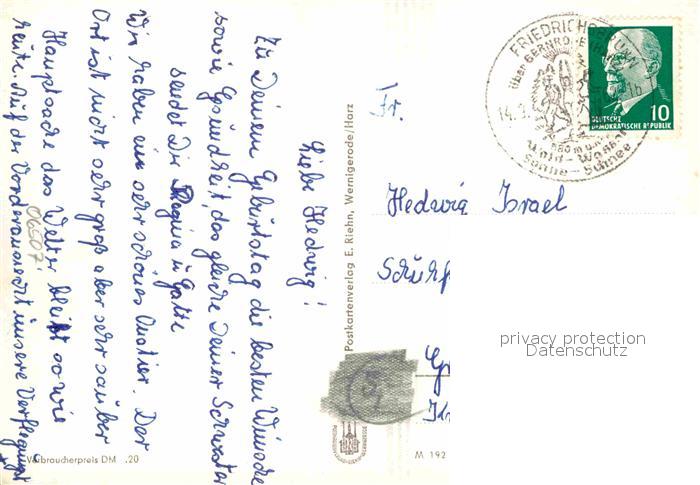 Liebe Hedwig!
Zu Deinem Geburtstag die besten Wünsche
sowie Gesundheit, das gleiche Deiner Schwester
sendet Dir Regina u Gatte
Wir haben ein sehr schönes Quatier. Der
Ort ist nicht sehr groß aber sehr sauber
Hauptsache das Wetter bleibt so wie
heute. Auf der Vorderansicht unsere Verpflegungs
06507
Verbraucherpreis DM .20
Postkartenverlag E. Riehn, Wernigerode/Harz
M 192
FRIEDRICHSBRUNN
über GERNRODE (HARZ)
14.3.
Wald - Wasser
Sonne - Schnee
10
DEUTSCHE
DEMOKRATISCHE REPUBLIK
Fr.
Hedwig Israel
privacy protection
Datenschutz